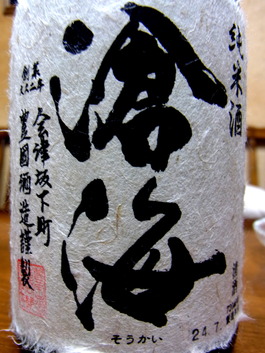 純米酒
滄海
そうかい
会津坂下町
豊國酒造謹製
24.7.